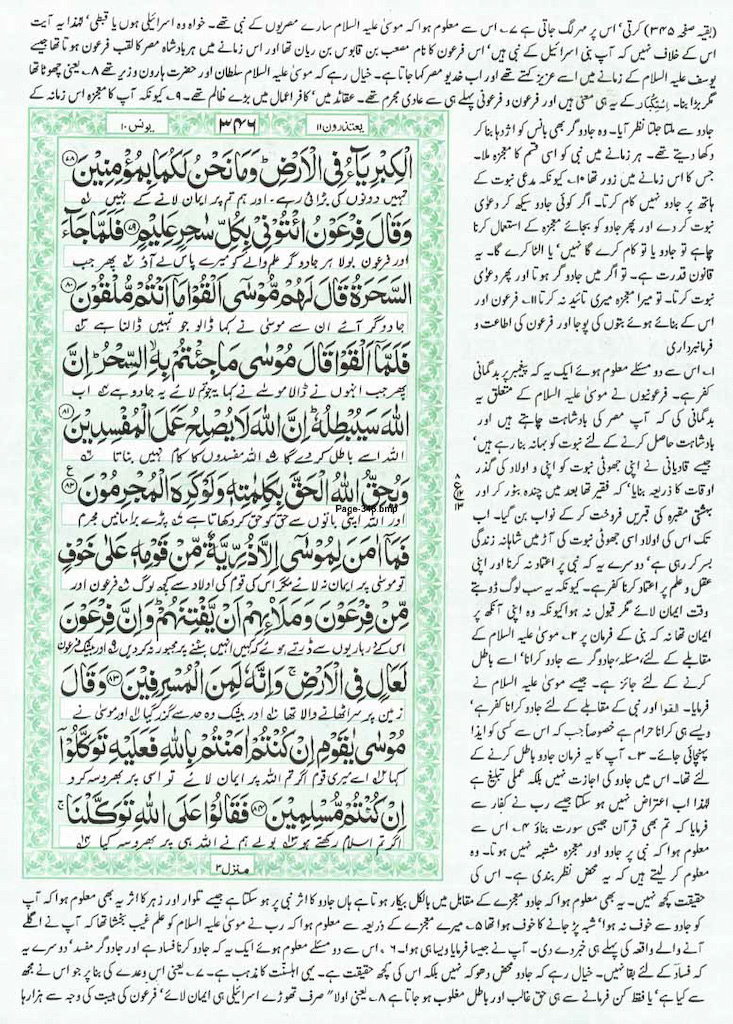 (بقیہ صفحہ ۳۴۵) کرتی‘ اس پر مہر لگ جاتی ہے ۷۔ اس سے معلوم ہوا کہ موسیٰ علیہ السلام سارے مصریوں کے نبی تھے۔ خواہ وہ اسرائیلی ہوں یا قبطی‘ لہٰذا یہ آیت
اس کے خلاف نہیں کہ آپ بنی اسرائیل کے نبی ہیں‘ اس فرعون کا نام مصعب بن قابوس بن ریان تھا اور اس زمانے میں ہر بادشاہ مصر کا لقب فرعون ہوتا تھا جیسے
یوسف علیہ السلام کے زمانے میں اسے عزیز کہتے تھے اور اب خدیو مصر کہا جاتا ہے۔ خیال رہے کہ موسیٰ علیہ السلام سلطان اور حضرت ہارون وزیر تھے ۸۔ یعنی جھوٹا تھا
مگر بڑا بنا۔ اِسْتِکْبَار کے یہ ہی معنی ہیں اور فرعون و فرعونی پہلے ہی سے عادی مجرم تھے۔ عقائد میں‘ کافر اعمال میں بڑے ظالم تھے۔ ۹۔ کیونکہ آپ کا معجزہ اس زمانہ کے
یعتذرون۱۱
۳۴۶
یونس۱۰
الْكِبْرِيَآءُ فِى الْاَرْضِ ؕ وَمَا نَحْنُ لَكُمَا بِمُؤْمِنِيْنَ ۷۸
تمہیں دونوں کی بڑائی رہے۔ اور ہم تم پر ایمان لانے کے نہیں
وَقَالَ فِرْعَوْنُ ائْتُوْنِىْ بِكُلِّ سٰحِرٍ عَلِيْمٍ ۷۹ فَلَمَّا جَآءَ
اور فرعون بولا ہر جادوگر علم والے کو میرے پاس لے آؤ پھر جب
السَّحَرَةُ قَالَ لَهُمْ مُّوْسٰٓى اَلْقُوْا مَاۤ اَنْتُمْ مُّلْقُوْنَ ۸۰
جادوگر آئے ان سے موسیٰ نے کہا ڈالو جو تمہیں ڈالنا ہے
فَلَمَّاۤ اَلْقَوْا قَالَ مُوْسٰى مَا جِئْتُمْ بِهِ ۙ السِّحْرُ ؕ اِنَّ
پھر جب انہوں نے ڈالا موسیٰ نے کہا یہ جو تم لائے یہ جادو ہے اب
اللّٰهَ سَيُبْطِلُهٗ ؕ اِنَّ اللّٰهَ لَا يُصْلِحُ عَمَلَ الْمُفْسِدِيْنَ ۸۱
اللہ اسے باطل کر دے گا اللہ مفسدوں کا کام نہیں بناتا
وَيُحِقُّ اللّٰهُ الْحَقَّ بِكَلِمٰتِهٖ وَلَوْ كَرِهَ الْمُجْرِمُوْنَ ۸۲
اور اللہ اپنی باتوں سے حق کو حق کر دکھاتا ہے پڑے برا مانیں مجرم
Page-346.bmp
فَمَاۤ اٰمَنَ لِمُوْسٰٓى اِلَّا ذُرِّيَّةٌ مِّنْ قَوْمِهٖ عَلٰى خَوْفٍ
تو موسیٰ پر ایمان نہ لائے مگر اس کی قوم کی اولاد سے کچھ لوگ فرعون اور
مِّنْ فِرْعَوْنَ وَمَلَا۟ئِهِمْ اَنْ يَّفْتِنَهُمْ ؕ وَاِنَّ فِرْعَوْنَ
اس کے درباریوں سے ڈرتے ہوئے کہ کہیں انہیں ہٹنے پر مجبور نہ کر دیں اور بیشک فرعون
لَعَالٍ فِى الْاَرْضِ ۚ وَاِنَّهٗ لَمِنَ الْمُسْرِفِيْنَ ۸۳ وَقَالَ
زمین پر سر اٹھانے والا تھا اور بیشک وہ حد سے گزر گیا اور موسیٰ نے
مُوْسٰى يٰقَوْمِ اِنْ كُنْتُمْ اٰمَنْتُمْ بِاللّٰهِ فَعَلَيْهِ تَوَكَّلُوْۤا
کہا اے میری قوم اگر تم اللہ پر ایمان لائے تو اسی پر بھروسہ کرو
اِنْ كُنْتُمْ مُّسْلِمِيْنَ ۸۴ فَقَالُوْا عَلَى اللّٰهِ تَوَكَّلْنَا ۚ
اگر تم اسلام رکھتے ہو بولے ہم نے اللہ ہی پر بھروسہ کیا
منزل۳
جادو سے ملتا جلتا نظر آیا۔ وہ جادوگر بھی بانس کو اژدہا بنا کر
دکھا دیتے تھے۔ ہر زمانے میں نبی کو اسی قسم کا معجزہ ملا۔
جس کا اس زمانے میں زور تھا ۱۰۔ کیونکہ مدعی نبوت کے
ہاتھ پر جادو نہیں کام کرتا۔ اگر کوئی جادو سیکھ کر دعویٰ
نبوت کر دے اور پھر جادو کو بجائے معجزہ کے استعمال کرنا
چاہے تو جادو یا تو کام کرے گا نہیں‘ یا الٹا کرے گا۔ یہ
قانون قدرت ہے۔ تو اگر میں جادوگر ہوتا اور پھر دعویٰ
نبوت کرتا۔ تو میرا معجزہ میری تائید نہ کرتا ۱۱۔ فرعون اور
اس کے بنائے ہوئے بتوں کی پوجا اور فرعون کی اطاعت و
فرمانبرداری
۱۔ اس سے دو مسئلے معلوم ہوئے ایک یہ کہ پیغمبر پر بدگمانی
کفر ہے۔ فرعونیوں نے موسیٰ علیہ السلام کے متعلق یہ
بدگمانی کی کہ آپ مصر کی بادشاہت چاہتے ہیں اور
بادشاہت حاصل کرنے کے لئے نبوت کو بہانہ بنا رہے ہیں‘
جیسے قادیانی نے اپنی جھوٹی نبوت کو اپنی و اولاد کی گذر
اوقات کا ذریعہ بنایا‘ کہ فقیر تھا بعد میں چندہ بٹور کر اور
بہشتی مقبرہ کی قبریں فروخت کر کے نواب بن گیا۔ اب
تک اس کی اولاد اسی جھوٹی نبوت کی آڑ میں شاہانہ زندگی
بسر کر رہی ہے‘ دوسرے یہ کہ نبی پر اعتماد نہ کرنا اور اپنی
عقل و علم پر اعتماد کرنا کفر ہے۔ کیونکہ یہ سب لوگ ڈوبتے
وقت ایمان لائے مگر قبول نہ ہوا کیونکہ وہ اپنی آنکھ پر
ایمان تھا نہ کہ نبی کے فرمان پر ۲۔ موسیٰ علیہ السلام کے
مقابلے کے لئے‘ مسئلہ‘ جادوگر سے جادو کرانا‘ اسے باطل
کرنے کے لئے جائز ہے۔ جیسے موسیٰ علیہ السلام نے
فرمایا۔ القوا اور نبی کے مقابلے کے لئے جادو کرانا کفر ہے‘
ویسے ہی کرانا حرام ہے خصوصاً جب کہ اس سے کسی کو ایذا
پہنچائی جائے۔ ۳۔ آپ کا یہ فرمان جادو باطل کرنے کے
لئے تھا۔ اس میں جادو کی اجازت نہیں بلکہ عملی تبلیغ ہے
لہٰذا اب اعتراض نہیں ہو سکتا جیسے رب نے کفار سے
فرمایا کہ تم بھی قرآن جیسی سورت بناؤ ۴۔ اس سے
معلوم ہوا کہ نبی پر جادو اور معجزہ مشتبہ نہیں ہوتا۔ وہ
معلوم کر لیتے ہیں کہ یہ محض نظر بندی ہے۔ اس کی
حقیقت کچھ نہیں۔ یہ بھی معلوم ہوا کہ جادو معجزے کے مقابل میں بالکل بیکار ہوتا ہے ہاں جادو کا اثر نبی پر ہو سکتا ہے جیسے تلوار اور زہر کا اثر یہ بھی معلوم ہوا کہ آپ
کو جادو سے خوف نہ ہوا‘ شبہ پڑ جانے کا خوف ہوا تھا ۵۔ میرے معجزے کے ذریعہ سے معلوم ہوا کہ رب نے موسیٰ علیہ السلام کو علم غیب بخشا تھا کہ آپ نے اگلے
آنے والے واقعہ کی پہلے ہی خبر دے دی۔ آپ نے جیسا فرمایا ویسا ہی ہوا۔ ۶۔ اس سے دو مسئلے معلوم ہوئے ایک یہ کہ جادو کرنا فساد ہے اور جادوگر مفسد‘ دوسرے یہ
کہ فساد کے لئے بقا نہیں۔ خیال رہے کہ جادو محض دھوکہ نہیں بلکہ اس کی کچھ حقیقت ہے۔ یہی اہلسنت کا مذہب ہے۔ ۷۔ یعنی اس وعدے کی بنا پر جو اس نے مجھ
سے کیا ہے‘ یا فقط کن فرمانے سے ہی حق غالب اور باطل مغلوب ہو جاتا ہے ۸۔ یعنی اولاً صرف تھوڑے اسرائیلی ہی ایمان لائے‘ فرعون کی ہیبت کی وجہ سے ہزارہا